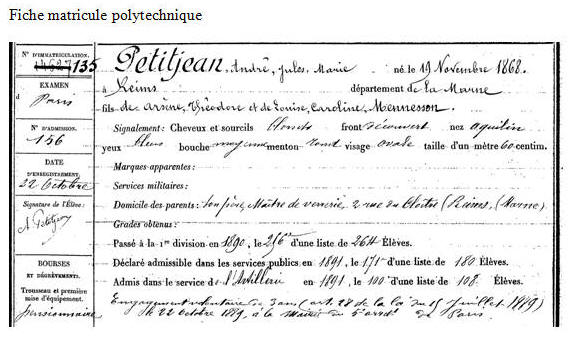 Fiche matricule polytechnique
N° D'IMMATRICULATION.
14627 135
EXAMEN
d Paris
N° D'ADMISSION.
156
DATE
D'ENREGISTREMENT.
22 Octobre
Signature de l'Élève :
A. Petitjean
BOURSES
ET DÉGRÈVEMENTS.
Trousseau et première
mise d'équipement.
pensionnaire
Petitjean, André, Jules, Marie né le 19 Novembre 1868.
à Reims département de la Marne
fils de Arsène, Théodore et de Louise, Caroline, Mennesson.
Signalement : Cheveux et sourcils blonds front découvert nez aquilin
yeux bleus bouche moyenne menton rond visage ovale taille d'un mètre 60 centim.
Marques apparentes :
Services militaires :
Domicile des parents : son père, Maître de verrerie, 2 rue du Cloître (Reims, (Marne)
Grades obtenus :
Passé à la 1re division en 1890, le 216e d'une liste de 264 Élèves.
Déclaré admissible dans les services publics en 1891, le 171e d'une liste de 180 Élèves.
Admis dans le service de l'Artillerie en 1891, le 100e d'une liste de 108 Élèves.
Engagement volontaire de 3 ans (art. 28 de la loi du 15 Juillet 1889)
le 22 Octobre 1889, à la Mairie du 5e arrdt de Paris.